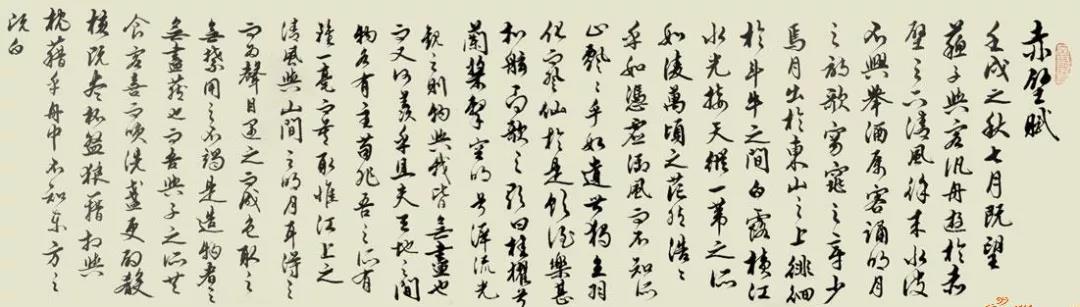 赤壁賦
壬戌之秋七月既望
蘇子與客汎舟遊於赤
壁之下清風徐來水波
不興舉酒屬客誦明月
之詩歌窈窕之章少
焉月出於東山之上徘徊
於斗牛之間白露橫江
水光接天縱一葦之所
如凌萬頃之茫然浩浩
乎如憑虛御風而不知所
止飄飄乎如遺世獨立羽
化而登仙於是飲酒樂甚
扣舷而歌之歌曰桂櫂兮
蘭槳擊空明兮泝流光
觀之則物與我皆無盡也
而又何羨乎且夫天地之間
物各有主苟非吾之所有
雖一毫而莫取惟江上之
清風與山間之明月耳得之
而為聲目遇之而成色取之
無禁用之不竭是造物者之
無盡藏也而吾與子之所共
食客喜而笑洗盞更酌殽
核既盡杯盤狼藉相與
枕藉乎舟中不知東方之
既白